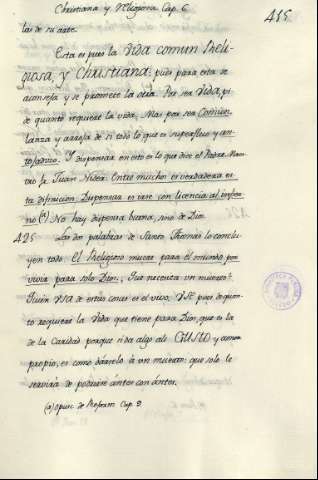 Christiana y Religiosa Cap. 6
415
las de su arte.
Esta es pues la Vida comun Reli-
giosa, y Christiana: pues para esta se
aconseja y se promete la otra. Por ser Vida, pi-
de quanto requiere la vida. Mas por ser Comun,
lanza y arroja de sí todo lo que es superfluo y an-
tojadizo. Y dispensar en esto es lo que dice el Padre Maes-
tro fr. Juan Nider. Entre muchos es verdadera es-
ta difinicion: Dispensar es irse con licencia al infier-
no (a). No hay dispensa buena, sino de Dios.
425 Las dos palabras de Santo Thomas lo conclu-
yen todo. El Religioso muere para el mundo, por
vivir para solo Dios. Que necesita un muerto?
Quien usa de estas cosas es el vivo. Use pues de quan-
to requiere la Vida que tiene para Dios, que es la
de la Caridad: porque si da algo al GUSTO y amor
propio, es como dárselo á un muerto: que solo le
servirá de podrirse ántes con ántes.
(a) opusc. de Reform. Cap. 9